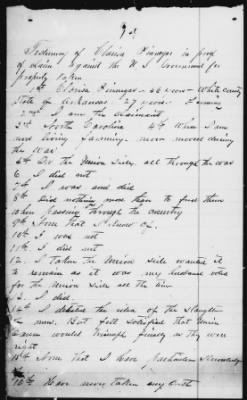 Testimony of Clarisa Finnegar in proof
of claim against the U. S. Government for
property taken
1st Clarisa Finnegar - 46 years - White County
State of Arkansas 27 years Farming
2nd I am the claimant
3rd North Carolina 4th Where I am
now living farming never moved during
the war
5th On the Union side all through the war
6 I did not
7th I was and did
8th Did nothing more than to feed them
when passing through the country
9th None that I know of
10th I was not
11th I did not
12. I taken the Union side wanted it
to remain as it was my husband voted
for the Union side all the time
13. I did
14th I the idea of the slaughter
of men. But felt satisfied that Union
would triumph finally as they were
right
15th None that I have
16th Have never taken any oath